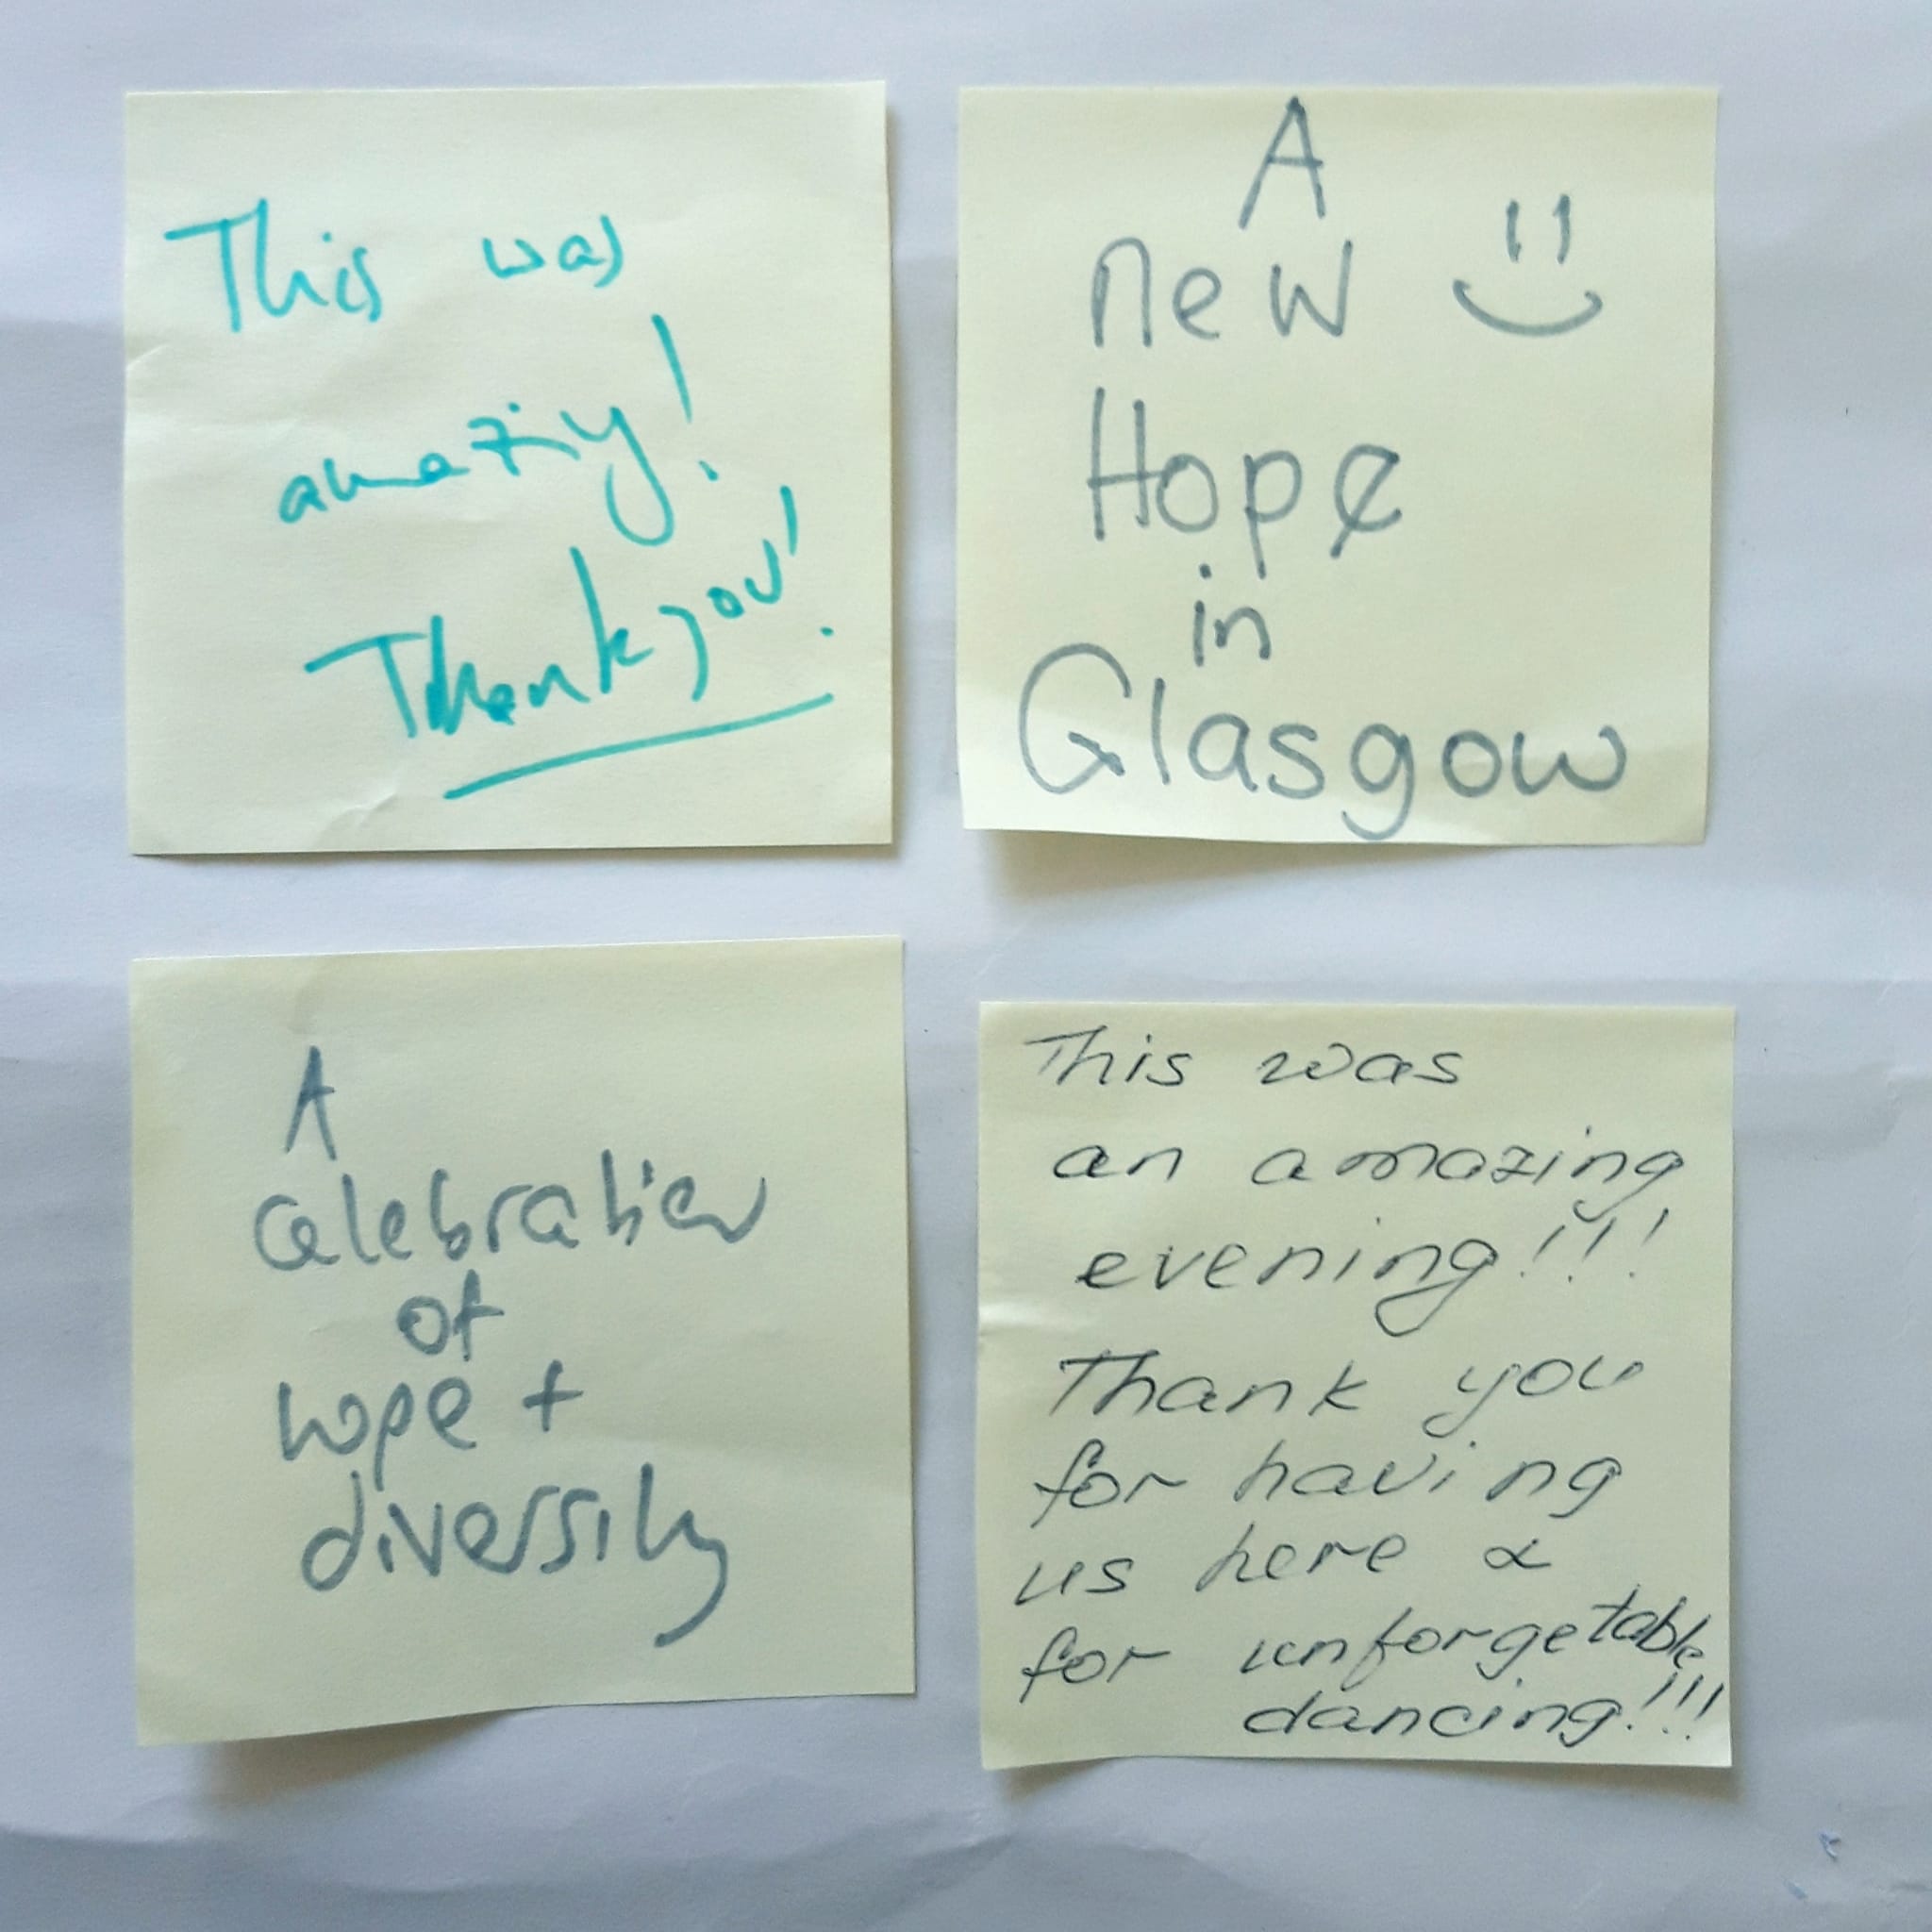 This was
amazing!
Thank you!
A
new
Hope
in
Glasgow
A
celebration
of
hope +
diversity
This was
an amazing
evening!!!
Thank you
for having
us here &
for unforgetable
dancing!!!